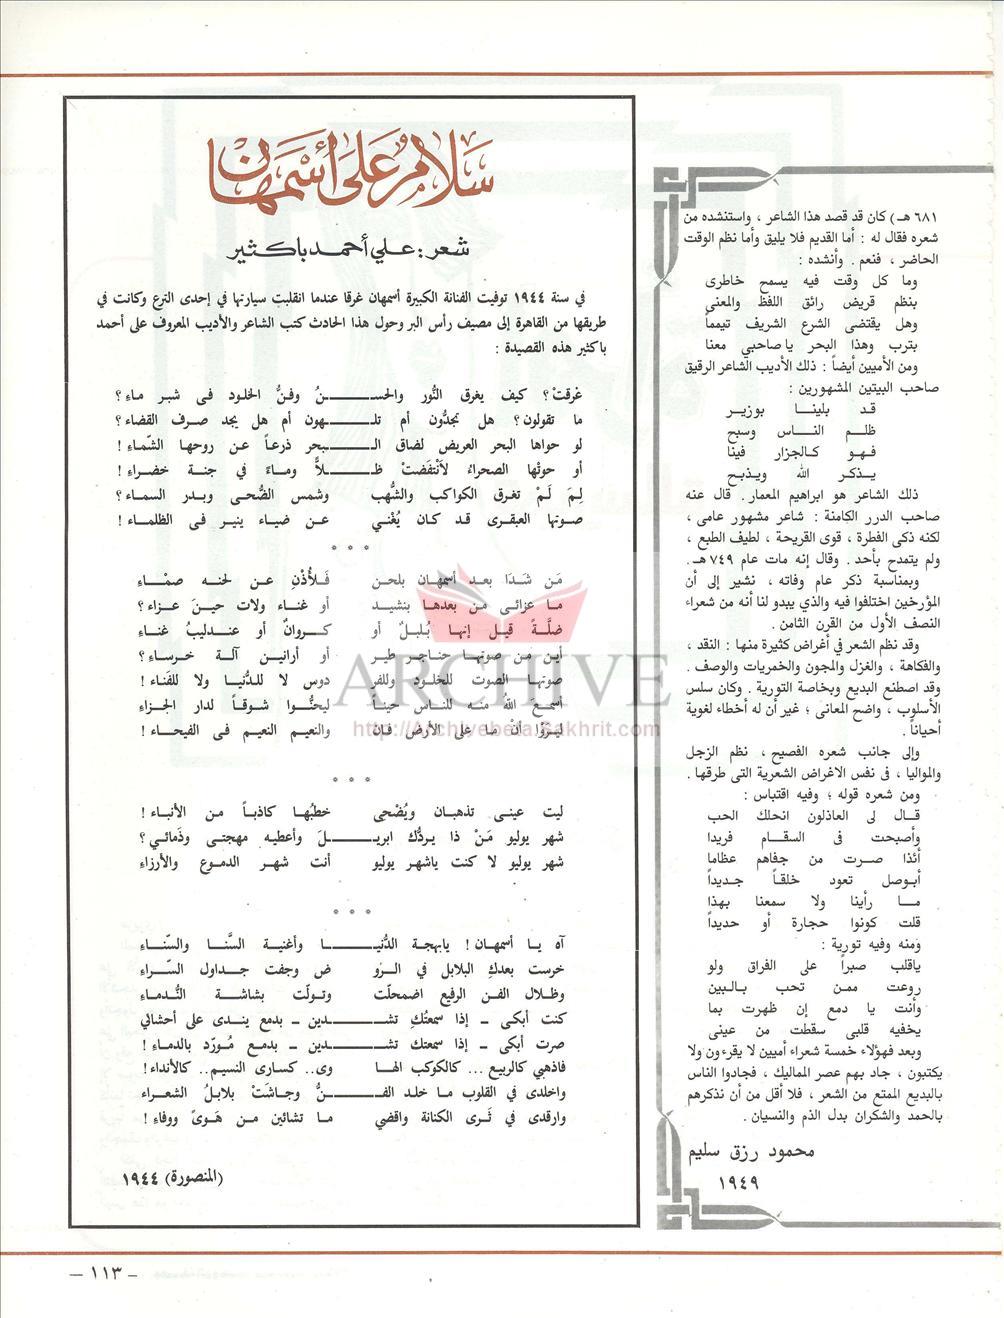 ٦٨١ هـ) كان قد قصد هذا الشاعر ، واستنشده من
شعره فقال له : أما القديم فلا يليق وأما نظم الوقت
الحاضر ، فنعم . وأنشده :
وما كل وقت فيه يسمح خاطرى
بنظم قريض رائق اللفظ والمعنى
وهل يقتضى الشرع الشريف تيمماً
بقرب وهذا البحر يا صاحبي معنا
ومن الأميين أيضاً : ذلك الأديب الشاعر الرقيق
صاحب البيتين المشهورين :
قد بلينا بوزير
ظلم الناس وسبح
فهو كالجزار فينا
يذكر الله ويذبح
ذلك الشاعر هو ابراهيم المعمار . قال عنه
صاحب الدرر الكامنة : شاعر مشهور عامى ،
لكنه ذكى الفطرة ، قوى القريحة ، لطيف الطبع ،
ولم يتمدح بأحد . وقال إنه مات عام ٧٤٩ هـ .
وبمناسبة ذكر عام وفاته ، نشير إلى أن
المؤرخين اختلفوا فيه والذي يبدو لنا أنه من شعراء
النصف الأول من القرن الثامن .
وقد نظم الشعر في أغراض كثيرة منها : النقد ،
والفكاهة ، والغزل والمجون والخمريات والوصف .
وقد اصطنع البديع وبخاصة التورية . وكان سلس
الأسلوب ، واضح المعانى ؛ غير أن له أخطاء لغوية
أحياناً .
وإلى جانب شعره الفصيح ، نظم الزجل
والمواليا ، فى نفس الاغراض الشعرية التى طرقها .
ومن شعره قوله ؛ وفيه اقتباس :
قال لى العاذلون انحلك الحب
وأصبحت فى السقام فريدا
أئذا صرت من جفاهم عظاما
أبوصل تعود خلقاً جديداً
ما رأينا ولا سمعنا بهذا
قلت كونوا حجارة أو حديداً
ومنه وفيه تورية :
ياقلب صبراً على الفراق ولو
روعت ممن تحب بالبين
وأنت يا دمع إن ظهرت بما
يخفيه قلبى سقطت من عينى
وبعد فهؤلاء خمسة شعراء أميين لا يقرءون ولا
يكتبون ، جاد بهم عصر المماليك ، فجادوا الناس
بالبديع الممتع من الشعر ، فلا أقل من أن نذكرهم
بالحمد والشكران بدل الذم والنسيان .
محمود رزق سليم
١٩٤٩
سلام على أسمهان
شعر : علي أحمد باكثير
في سنة ١٩٤٤ توفيت الفنانة الكبيرة أسمهان غرقا عندما انقلبت سيارتها في إحدى الترع وكانت في
طريقها من القاهرة إلى مصيف رأس البر وحول هذا الحادث كتب الشاعر والأديب المعروف على أحمد
باكثير هذه القصيدة :
غرقتْ؟ كيف يغرق النُّور والحســـنُ وفنُّ الخلود فى شبر ماءِ؟
ما تقولون؟ هل تجدُّون أم تلـــهون أم هل يجد صرف القضاء؟
لو حواها البحر العريض لضاق الـــبحر ذرعاً عن روحها الشمّاء !
أو حوتْها الصحراءُ لاَنْتفَضتْ ظـــلاًّ وماءً في جنة خضراءِ !
لِمَ لَمْ تغرق الكواكب والشُّهب وشمس الضُّحى وبدر السماء؟
صوتها العبقرى قد كان يُغْني عن ضياء ينير فى الظلماء !
* * *
مَن شَدَا بعد أسمهان بلحن فَلأُذْنِ عن لحنه صمْاءِ
ما عزائى من بعدها بنشيد أو غناء ولات حينَ عزاء؟
ضلَّةً قيل إنها بُلبلٌ أو كروانٌ أو عندليبُ غناءِ
أين من صوتها حناجر طير أو أرانين آلة خرساءِ؟
صوتها الصوت للخلود وللفردوس لا للدُّنيا ولا للفَناء !
أسمع اللهُ منه للناس حيناً ليحنُّوا شوقاً لدار الجزاءِ
ليرَوْا أنْ ما على الأرض فان والنعيم النعيم فى الفيحاء !
* * *
ليت عينى تذهبان ويُضْحى خطبُها كاذباً من الأنباء !
شهر يوليو مَنْ ذا يردُّك ابريـــلَ وأعطيه مهجتى وذَمائي؟
شهر يوليو لا كنت ياشهر يوليو أنت شهر الدموع والأرزاءِ
* * *
آه يا أسمهان ! يابهجة الدُّنيـــا وأغنية السَّنا والسّناءِ
خرست بعدكِ البلابل في الروض وجفت جداول السّراءِ
وظلال الفن الرفيع اضمحلّت وتولّت بشاشة النُّدماءِ
كنت أبكى ــ إذا سمعتُكِ تشـــدين ــ بدمع يندى على أحشائي
صرت أبكى ــ إذا سمعتك تشـــدين ــ بدمع مُورّد بالدماءِ !
فاذهبي كالربيع ... كالكوكب الهاوى.. كسارى النسيم.. كالأنداء !
واخلدى في القلوب ما خلد الفـــنُّ وجاشتْ بلابلُ الشعراء
وارقدى في ثَرى الكنانة واقضي ما تشائين من هَوىً ووفاءِ !
(المنصورة) ١٩٤٤
ARCHIVE
http://Archivebeta.Sakhrit.com
– ١١٣ –